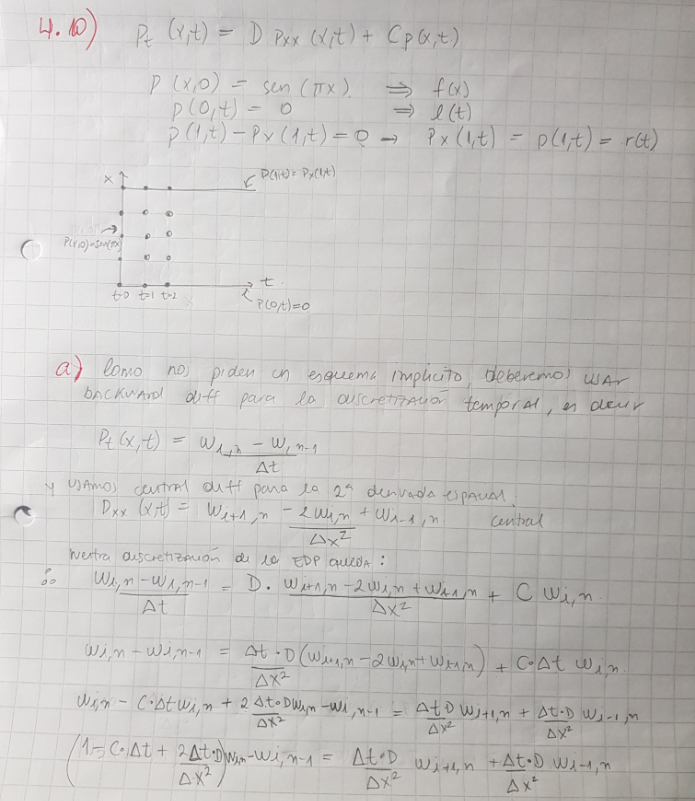 4.10) Pt (x,t) = D Pxx (x,t) + Cp(x,t)
P (x,0) = sen (πx). ⇒ f(x)
P(0,t) = 0 ⇒ l(t)
P(1,t) - Px (1,t) = 0 → Px (1,t) = p(1,t) = r(t)
x P(1,t) = Px(1,t)
P(x,0)=sen(πx)
t
t=0 t=1 t=2 P(0,t)=0
a) Como nos piden un esquema implícito, deberemos usar
backward diff para la discretización temporal, es decir
Pt (x,t) = wi,n - wi,n-1 / Δt
y usamos central diff para la 2ª derivada espacial.
Dxx (x,t) = wi+1,n - 2wi,n + wi-1,n / Δx² central
Nuestra discretización de la EDP queda:
∴ wi,n - wi,n-1 / Δt = D. wi+1,n - 2wi,n + wi-1,n / Δx² + C wi,n.
wi,n - wi,n-1 = Δt·D / Δx² (wi+1,n - 2wi,n + wi-1,n) + C·Δt wi,n.
wi,n - C·Δt wi,n + 2Δt·D / Δx² wi,n - wi,n-1 = Δt D / Δx² wi+1,n + Δt·D / Δx² wi-1,n
(1 - C·Δt + 2Δt·D / Δx²) wi,n - wi,n-1 = Δt·D / Δx² wi+1,n + Δt·D / Δx² wi-1,n